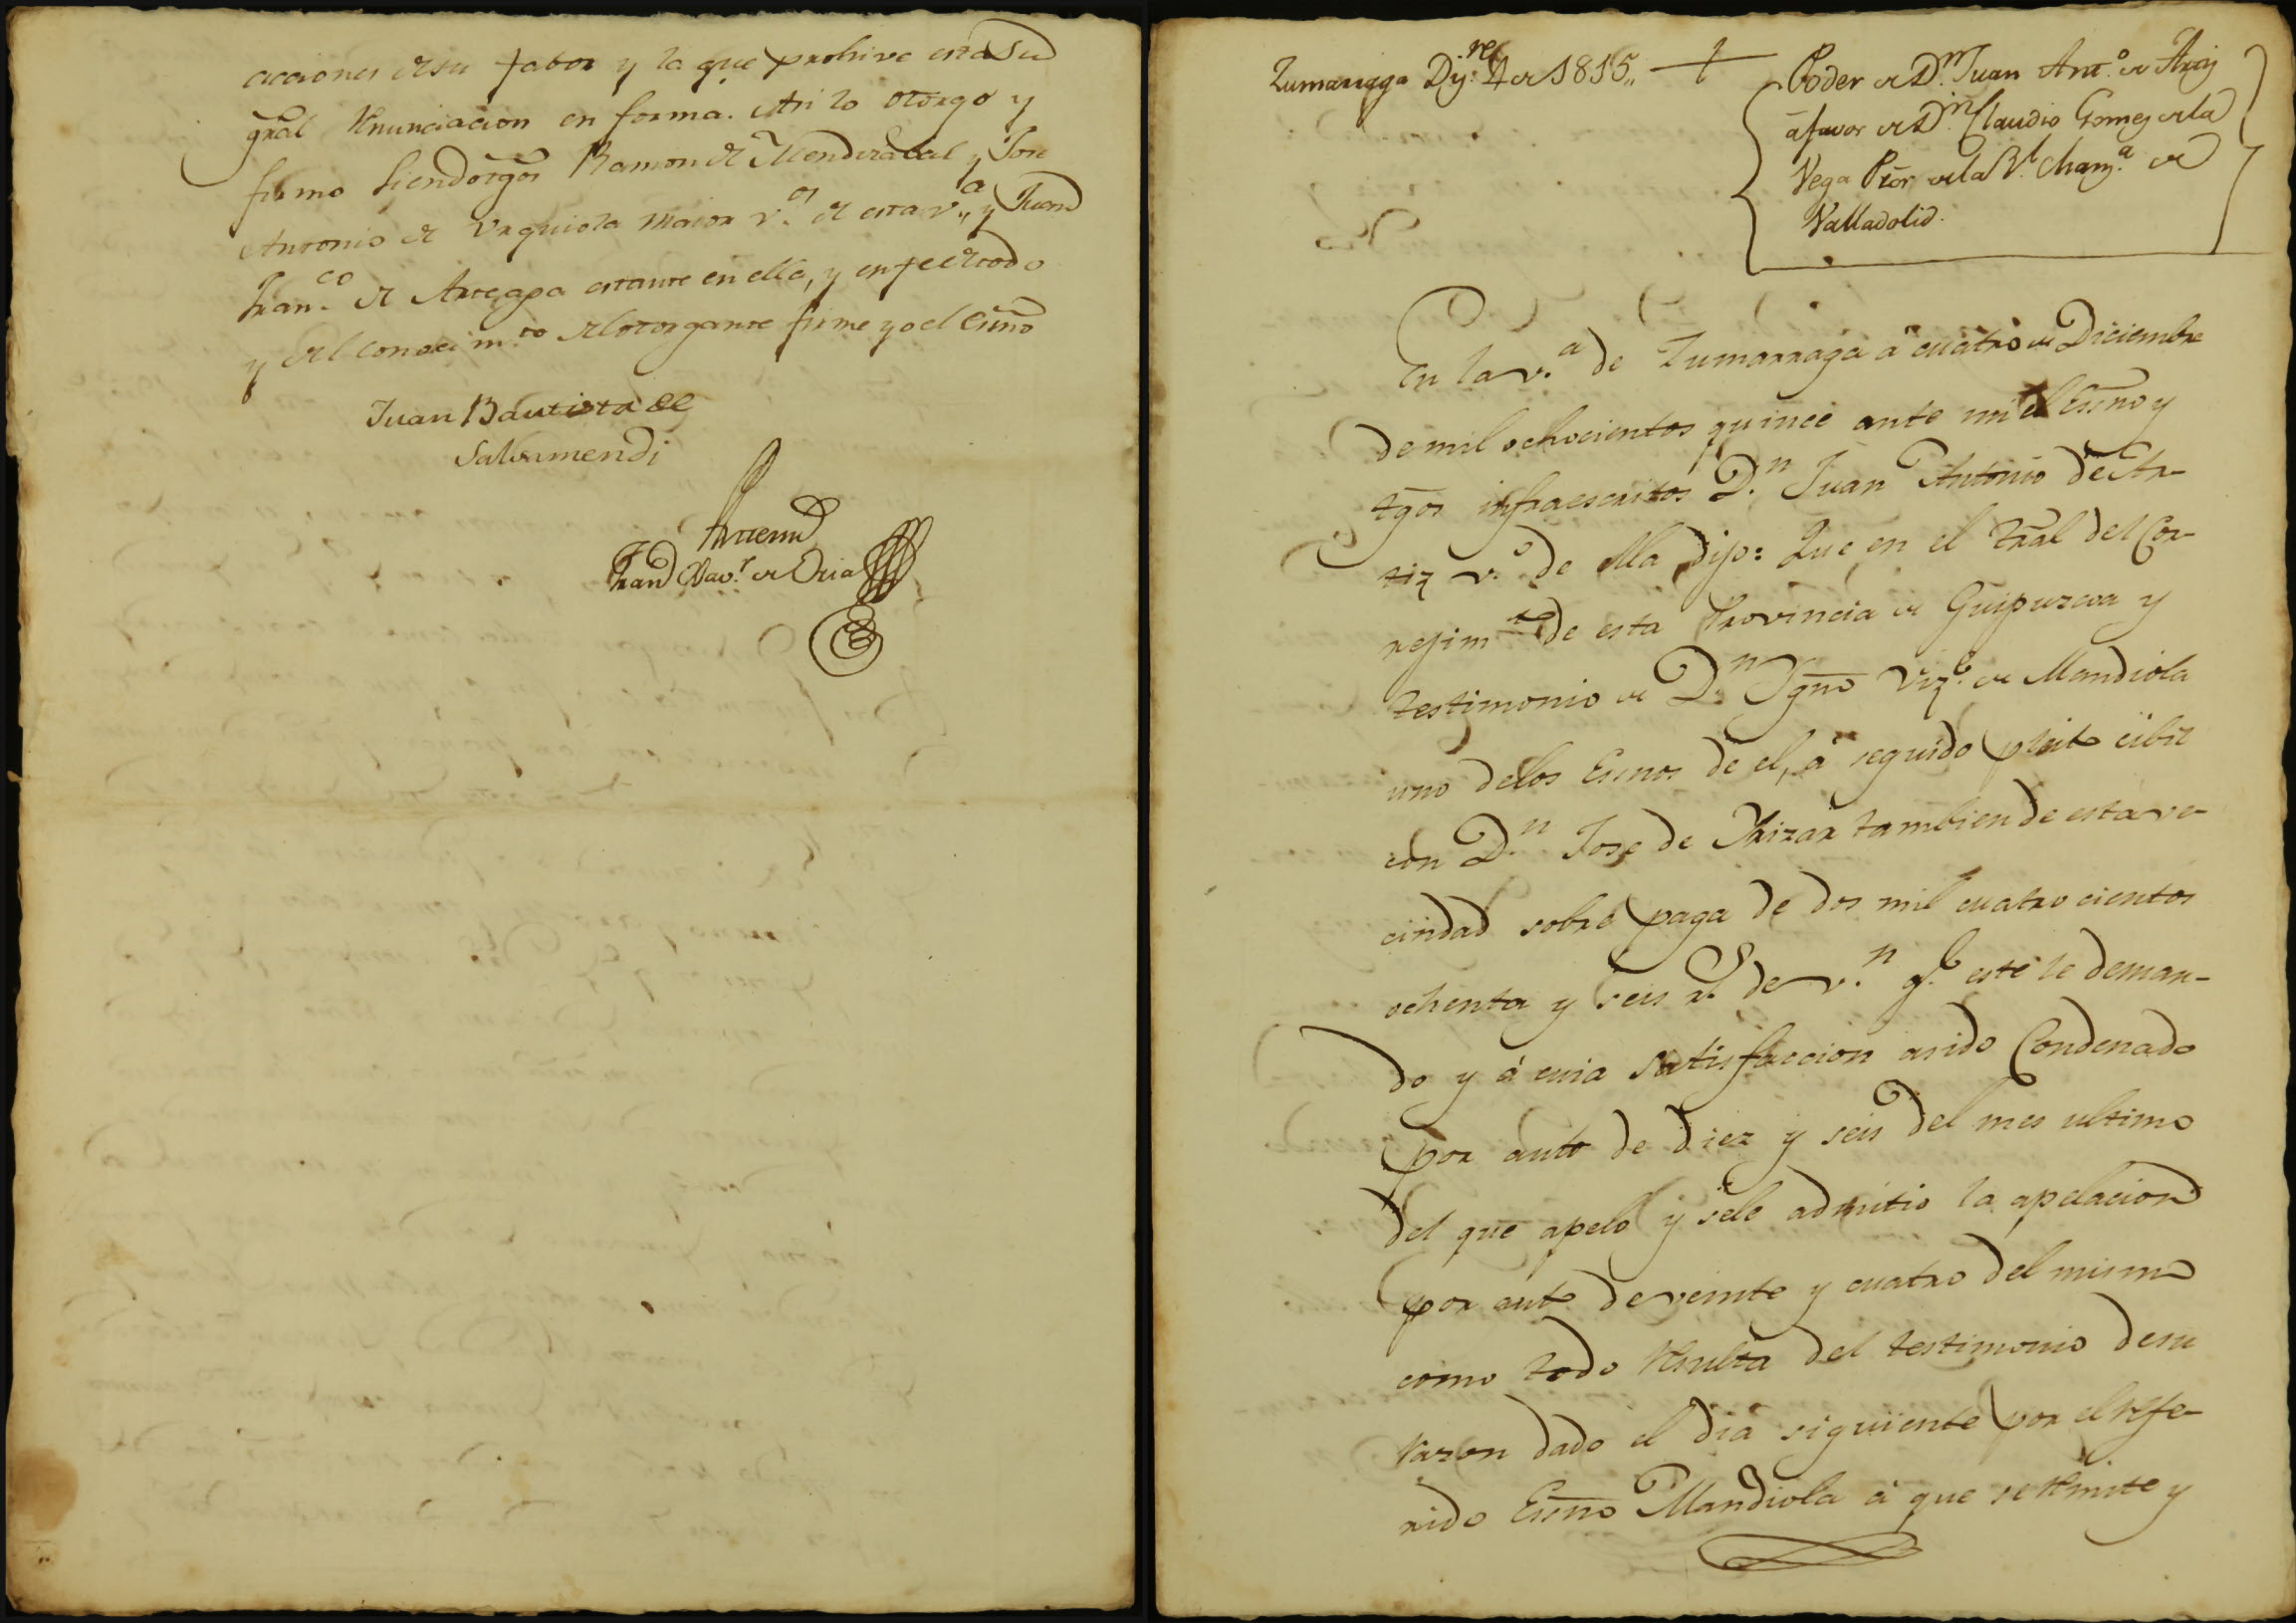 acciones de su fabor y la que prohive esta su
gral renunciacion en forma. Asi lo otorgo y
firmo siendo tgos Ramon de Mendizabal y Jose
Antonio de Urquiola maior v.os de esta v.a y Juan
Fran.co de Arteaga estante en ella, y en fee de todo
y del conocim.to del otorgante firme yo el Esno
Juan Bautista de
Salsamendi
Antemi
Fran Xav.r de Oria
Zumarraga Diz.re 4 de 1815,,
Poder de D.n Juan Ant.o de Artiz
á favor de D.n Claudio Gomez de la
Vega Pror de la R.l Chanz.a de
Valladolid.
En la v.a de Zumarraga á cuatro de Diciembre
de mil ochocientos quince ante mi el Esno y
tgos infraescritos D.n Juan Antonio de Ar-
tiz v.o de ella dijo: Que en el tral del Cor-
rejim.to de esta Provincia de Guipuzcoa y
testimonio de D.n Ygno Viz.te de Mandiola
uno de los Esnos de el, á seguido pleito cibil
con D.n Jose de Yrizar tambien de esta ve-
cindad sobre paga de dos mil cuatro cientos
ochenta y seis r.s de v.n q.e este le deman-
do y á cuia satisfaccion asido Condenado
por auto de diez y seis del mes ultimo
del que apelo y sele admitio la apelacion
por auto de veinte y cuatro del mismo
como todo resulta del testimonio de su
razon dado el dia siguiente por el refe-
rido Esno Mandiola á que se remite y